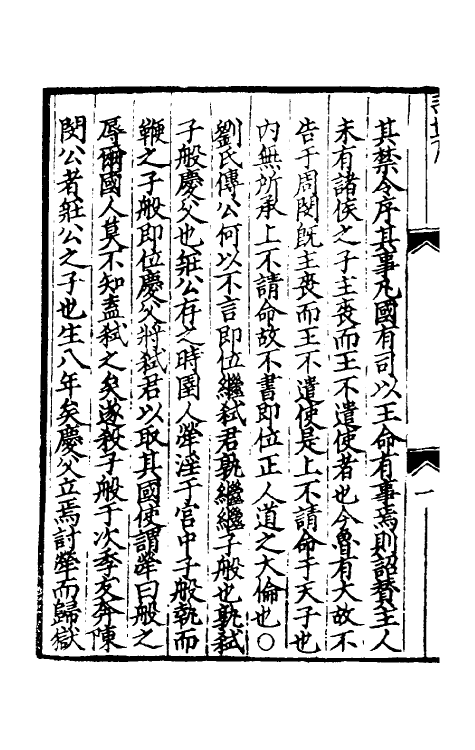 其禁令序其事凡國有司以王命有事焉則詔賛主人
未有諸侯之子主喪而王不遣使者也今魯有大故不
告于周閔旣主喪而王不遣使是上不請命于天子也
内無所承上不請命故不書即位正人道之大倫也○
劉氏傳公何以不言即位繼弑君孰繼繼子般也孰弑
子般慶父也莊公存之時圉人犖淫于宫中子般執而
鞭之子般即位慶父將弑君以取其國使謂犖曰般之
辱爾國人莫不知盍弑之矣遂殺子般于次季友奔陳
閔公者莊公之子也生八年矣慶父立焉討犖而歸獄
一